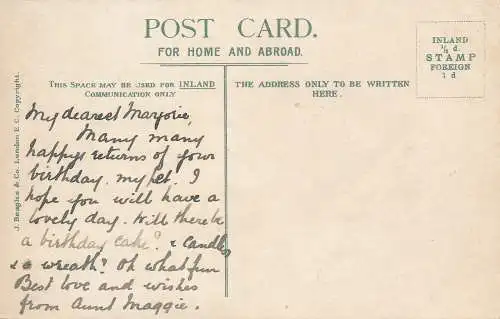 POST CARD.
FOR HOME AND ABROAD.
INLAND
½ d.
STAMP
FOREIGN
1 d
THIS SPACE MAY BE USED FOR INLAND
COMMUNICATION ONLY
THE ADDRESS ONLY TO BE WRITTEN
HERE.
J. Beagles & Co. London E C. Copyright.
My dearest Marjorie,
Many many
happy returns of your
birthday, my pet. I
hope you will have a
lovely day. Will there be
a birthday cake? & candles
& a wreath? Oh what fun
Best love and wishes
from Aunt Maggie.